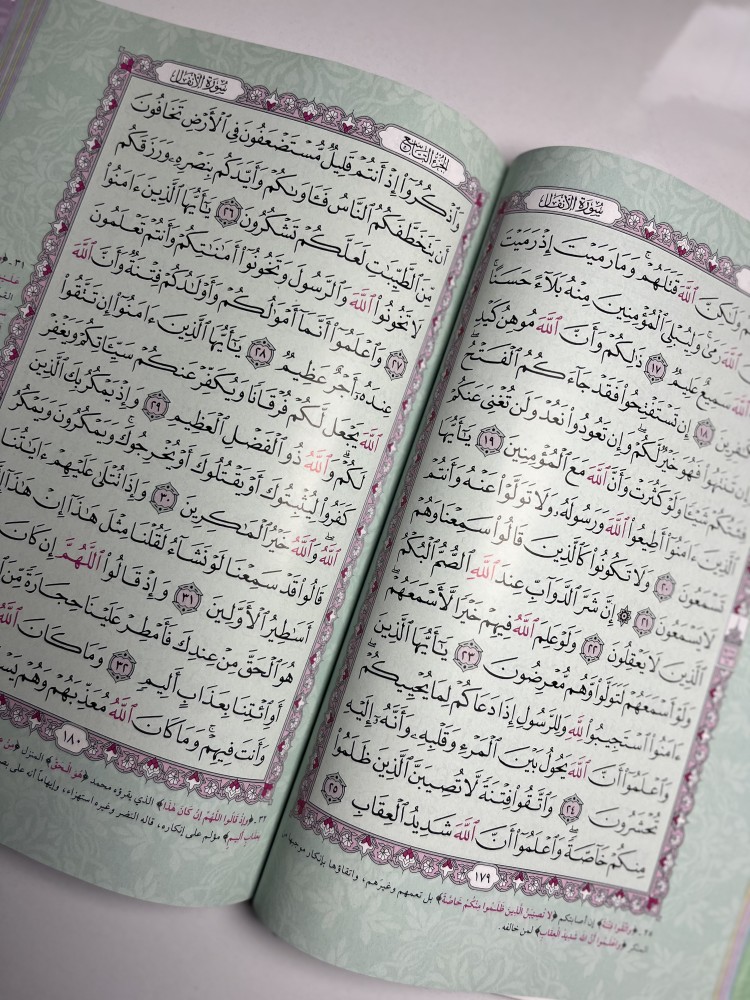 سُورَةُ الأَنفَالِ
وَلَٰكِنَّ ٱللَّهَ قَتَلَهُمْ ۚ وَمَا رَمَيْتَ إِذْ رَمَيْتَ
ٱللَّهَ رَمَىٰ ۚ وَلِيُبْلِيَ ٱلْمُؤْمِنِينَ مِنْهُ بَلَآءً حَسَنًا ۚ
ٱللَّهَ سَمِيعٌ عَلِيمٌ ١٧ ذَٰلِكُمْ وَأَنَّ ٱللَّهَ مُوهِنُ كَيْدِ
ٱلْكَٰفِرِينَ ١٨ إِن تَسْتَفْتِحُوا۟ فَقَدْ جَآءَكُمُ ٱلْفَتْحُ ۖ
تَنتَهُوا۟ فَهُوَ خَيْرٌ لَّكُمْ ۖ وَإِن تَعُودُوا۟ نَعُدْ وَلَن تُغْنِىَ عَنكُمْ
فِئَتُكُمْ شَيْـًٔا وَلَوْ كَثُرَتْ وَأَنَّ ٱللَّهَ مَعَ ٱلْمُؤْمِنِينَ ١٩ يَٰٓأَيُّهَا
ٱلَّذِينَ ءَامَنُوٓا۟ أَطِيعُوا۟ ٱللَّهَ وَرَسُولَهُۥ وَلَا تَوَلَّوْا۟ عَنْهُ وَأَنتُمْ
تَسْمَعُونَ ٢٠ وَلَا تَكُونُوا۟ كَٱلَّذِينَ قَالُوا۟ سَمِعْنَا وَهُمْ
لَا يَسْمَعُونَ ٢١ ۞ إِنَّ شَرَّ ٱلدَّوَآبِّ عِندَ ٱللَّهِ ٱلصُّمُّ ٱلْبُكْمُ
ٱلَّذِينَ لَا يَعْقِلُونَ ٢٢ وَلَوْ عَلِمَ ٱللَّهُ فِيهِمْ خَيْرًا لَّأَسْمَعَهُمْ ۖ
وَلَوْ أَسْمَعَهُمْ لَتَوَلَّوا۟ وَّهُم مُّعْرِضُونَ ٢٣ يَٰٓأَيُّهَا ٱلَّذِينَ
ءَامَنُوا۟ ٱسْتَجِيبُوا۟ لِلَّهِ وَلِلرَّسُولِ إِذَا دَعَاكُمْ لِمَا يُحْيِيكُمْ ۖ
وَٱعْلَمُوٓا۟ أَنَّ ٱللَّهَ يَحُولُ بَيْنَ ٱلْمَرْءِ وَقَلْبِهِۦ وَأَنَّهُۥٓ إِلَيْهِ
تُحْشَرُونَ ٢٤ وَٱتَّقُوا۟ فِتْنَةً لَّا تُصِيبَنَّ ٱلَّذِينَ ظَلَمُوا۟
مِنكُمْ خَآصَّةً ۖ وَٱعْلَمُوٓا۟ أَنَّ ٱللَّهَ شَدِيدُ ٱلْعِقَابِ ٢٥
١٧٩
٢٥. ﴿واتقوا فتنة﴾ إن أصابتكم ﴿لا تصيبن الذين ظلموا منكم خاصة﴾ بل تعمهم وغيرهم، واتقاؤها بإنكار موجبها من
المنكر ﴿واعلموا أن الله شديد العقاب﴾ لمن خالفه.
الجزء التاسع
سُورَةُ الأَنفَالِ
وَٱذْكُرُوٓا۟ إِذْ أَنتُمْ قَلِيلٌ مُّسْتَضْعَفُونَ فِى ٱلْأَرْضِ تَخَافُونَ
أَن يَتَخَطَّفَكُمُ ٱلنَّاسُ فَـَٔاوَىٰكُمْ وَأَيَّدَكُم بِنَصْرِهِۦ وَرَزَقَكُم
مِّنَ ٱلطَّيِّبَٰتِ لَعَلَّكُمْ تَشْكُرُونَ ٢٦ يَٰٓأَيُّهَا ٱلَّذِينَ ءَامَنُوا۟
لَا تَخُونُوا۟ ٱللَّهَ وَٱلرَّسُولَ وَتَخُونُوٓا۟ أَمَٰنَٰتِكُمْ وَأَنتُمْ تَعْلَمُونَ
٢٧ وَٱعْلَمُوٓا۟ أَنَّمَآ أَمْوَٰلُكُمْ وَأَوْلَٰدُكُمْ فِتْنَةٌ وَأَنَّ ٱللَّهَ
عِندَهُۥٓ أَجْرٌ عَظِيمٌ ٢٨ يَٰٓأَيُّهَا ٱلَّذِينَ ءَامَنُوٓا۟ إِن تَتَّقُوا۟
ٱللَّهَ يَجْعَل لَّكُمْ فُرْقَانًا وَيُكَفِّرْ عَنكُمْ سَيِّـَٔاتِكُمْ وَيَغْفِرْ
لَكُمْ ۗ وَٱللَّهُ ذُو ٱلْفَضْلِ ٱلْعَظِيمِ ٢٩ وَإِذْ يَمْكُرُ بِكَ ٱلَّذِينَ
كَفَرُوا۟ لِيُثْبِتُوكَ أَوْ يَقْتُلُوكَ أَوْ يُخْرِجُوكَ ۚ وَيَمْكُرُونَ وَيَمْكُرُ
ٱللَّهُ ۖ وَٱللَّهُ خَيْرُ ٱلْمَٰكِرِينَ ٣٠ وَإِذَا تُتْلَىٰ عَلَيْهِمْ ءَايَٰتُنَا
قَالُوا۟ قَدْ سَمِعْنَا لَوْ نَشَآءُ لَقُلْنَا مِثْلَ هَٰذَآ ۙ إِنْ هَٰذَآ
أَسَٰطِيرُ ٱلْأَوَّلِينَ ٣١ وَإِذْ قَالُوا۟ ٱللَّهُمَّ إِن كَانَ
هُوَ ٱلْحَقَّ مِنْ عِندِكَ فَأَمْطِرْ عَلَيْنَا حِجَارَةً مِّنَ
أَوِ ٱئْتِنَا بِعَذَابٍ أَلِيمٍ ٣٢ وَمَا كَانَ ٱللَّهُ
وَأَنتَ فِيهِمْ ۚ وَمَا كَانَ ٱللَّهُ مُعَذِّبَهُمْ وَهُمْ
١٨٠
٣٢. ﴿وإذ قالوا اللهم إن كان هذا﴾ الذي يقرؤه محمد ﴿هو الحق﴾ المنزل ﴿من
بعذاب أليم﴾ مؤلم على إنكاره، قاله النضر وغيره استهزاء، وإيهاماً أنه على
٣١.